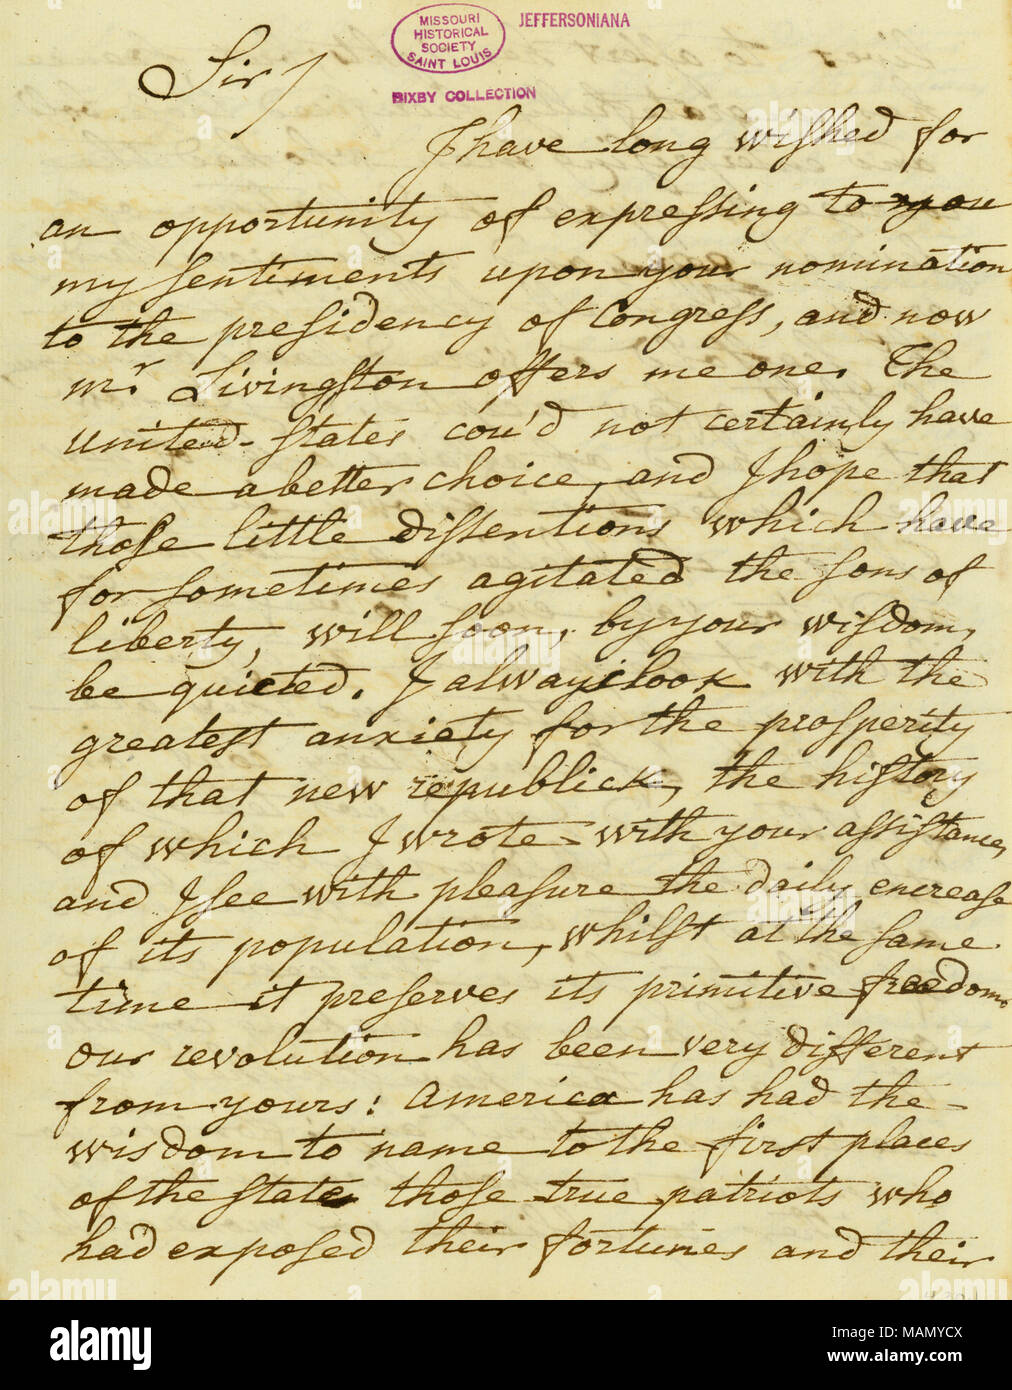 MISSOURI
HISTORICAL
SOCIETY
SAINT LOUIS
JEFFERSONIANA
BIXBY COLLECTION
Sir /
I have long wiſhed for
an opportunity of expreſsing to you
my ſentiments upon your nomination
to the preſidency of Congreſs, and now
mr. Livingſton offers me one. The
united-ſtates cou'd not certainly have
made a better choice, and I hope that
thoſe little diſsentions which have
for ſometimes agitated the ſons of
liberty, will ſoon, by your wiſdom,
be quieted. I always look with the
greatest anxiety for the proſperity
of that new republick, the hiſtory
of which I wrote with your aſsiſtance,
and I ſee with pleaſure the daily encreaſe
of its population, whilſt at the ſame
time it preſerves its primitive freedom.
Our revolution has been very different
from yours: America has had the
wisdom to name to the first places
of the ſtate thoſe true patriots who
had expoſed their fortunes and their
alamy
alamy stock photo
MAMYCX
www.alamy.com